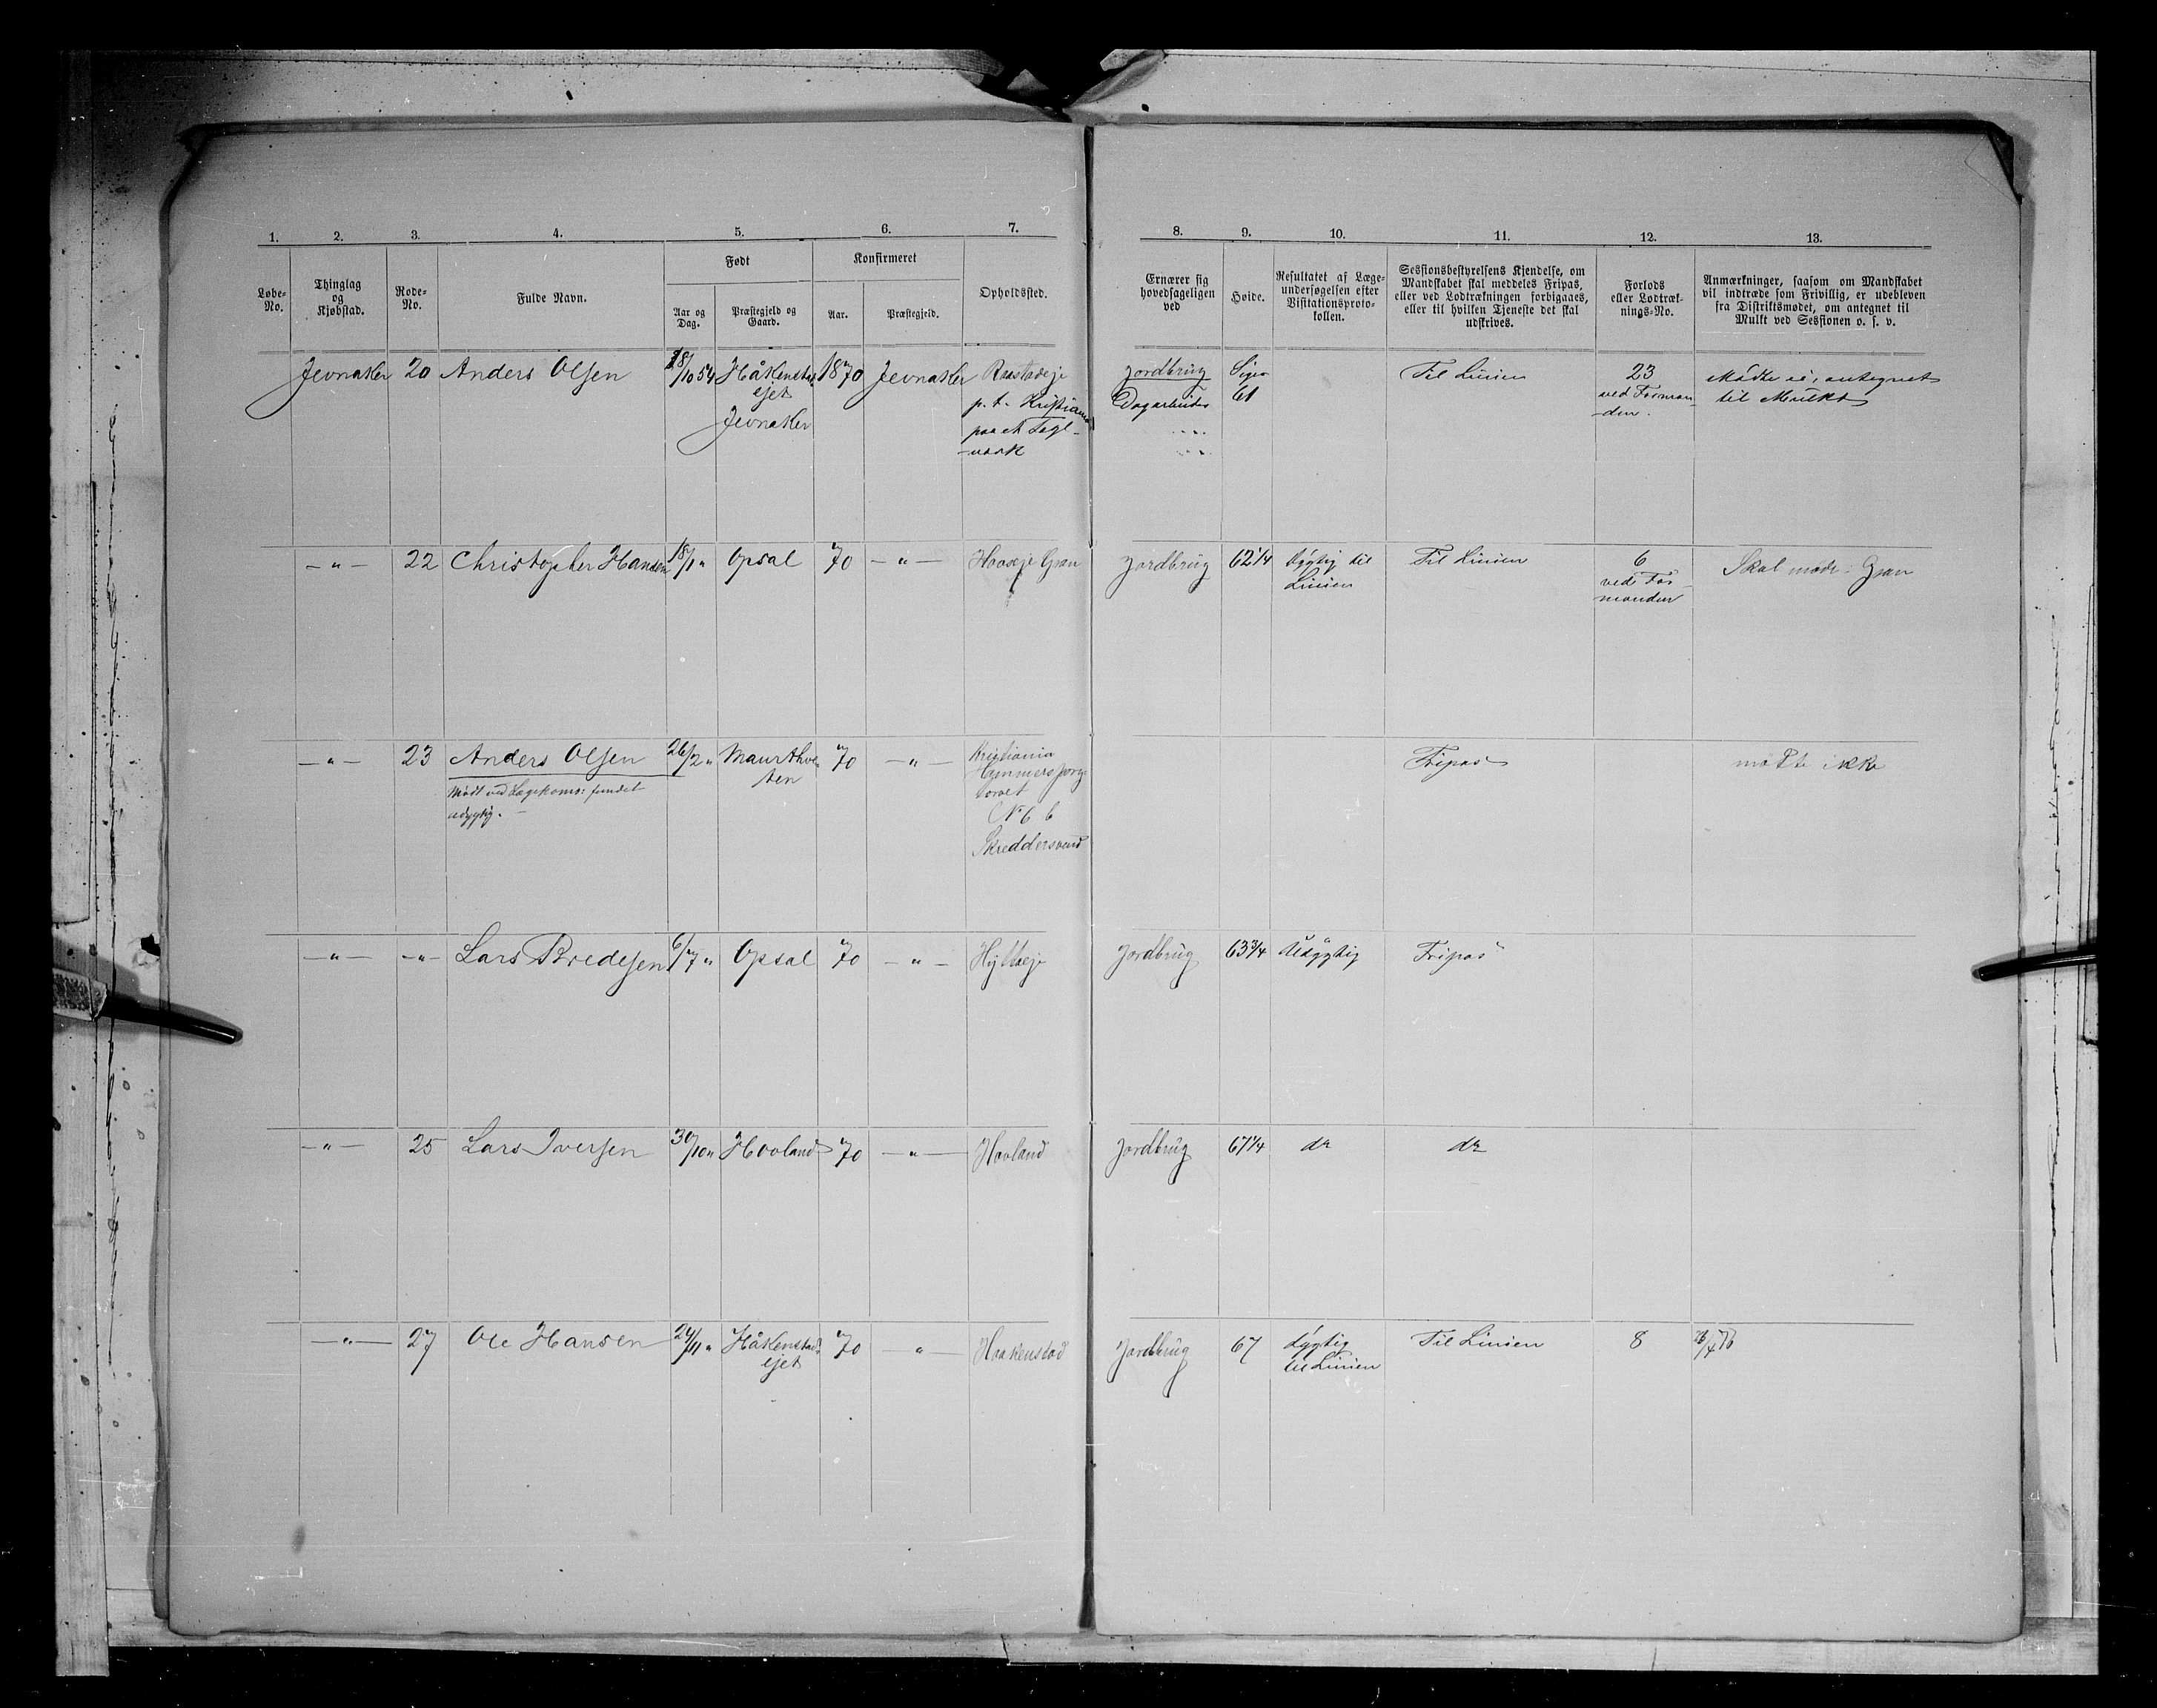 1. 2. 3. 4. 5. 6. 7. 8. 9. 10. 11. 12. 13.
Løbe-No. Thinglag og Kjøbstad. Rode-No. Fulde Navn. Født Aar og Dag. Præstegjeld og Gaard. Konfirmeret Aar. Præstegjeld. Opholdssted.
Ernærer sig hovedsageligen ved Høide. Resultatet af Læge-undersøgelsen efter Visitationsproto-kollen. Sessionsbestyrelsens Kjendelse, om Mandskabet skal meddeles Fripas, eller ved Lodtrækningen forbigaaes, eller til hvilken Tjeneste det skal udskrives. Forlods eller Lodtræk-nings-No. Anmærkninger, saasom om Mandskabet vil indtræde som Frivillig, er udebleven fra Distriktsmødet, om antegnet til Mulkt ved Sessionen o. s. v.
Jevnaker 20 Anders Olsen 18/10 54 Håkenstad 1870 Jevnaker Jordbrug Siger Til Linien 23 Mødte ei, antegnet
ejet p. t. Kristiania Dagarbeider 61 ved Forman- til Mulkt
Jevnaker paa et Tegl- -den.
-værk
-"- 22 Christopher Hansen 18/1 " Opsal 70 -"- Gran Jordbrug 62 1/4 Dygtig til Til Linien 6 Skal møde i Gran
Linien ved For-
manden
-"- 23 Anders Olsen 26/2 " 70 -"- Kristiania Fripas mødte ikke
Mødt ved Lægekoms: fundet Hammersborg
udygtig. - torvet
No 6 b
Skreddersvend
-"- -"- Lars Bredesen 6/7 " Opsal 70 -"- Jordbrug 63 3/4 Udygtig Fripas
-"- 25 Lars Iversen 30/10 " Hovland 70 -"- Hovland Jordbrug 67 1/4 do do
-"- 27 Ole Hansen 24/11 " Håkenstad 70 -"- Haakenstad Jordbrug 67 Dygtig Til Linien 8
ejet til Linien